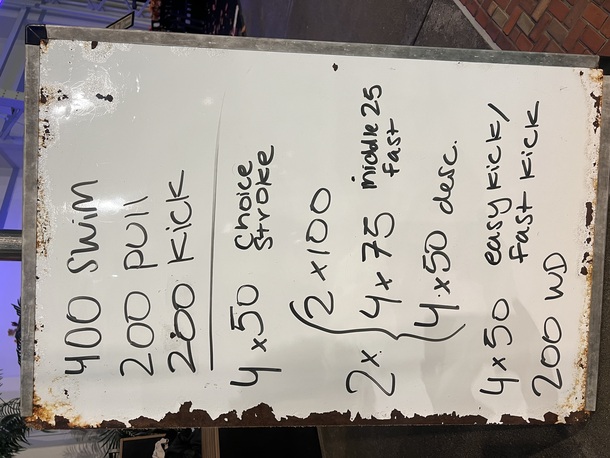 400 Swim
200 PUll
200 Kick
4 x 50 Choice
Stroke
2 x 100
2x. 4 x 75 middle 25
Fast
4 x 50 desc.
4 x 50 easy Kick/
Fast Kick
200 WD